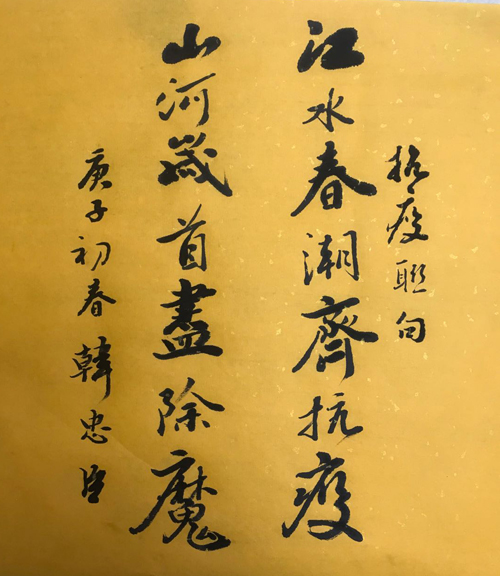 抗疫联句
江水春潮齊抗疫
山河歲首盡除魔
庚子初春韓忠臣